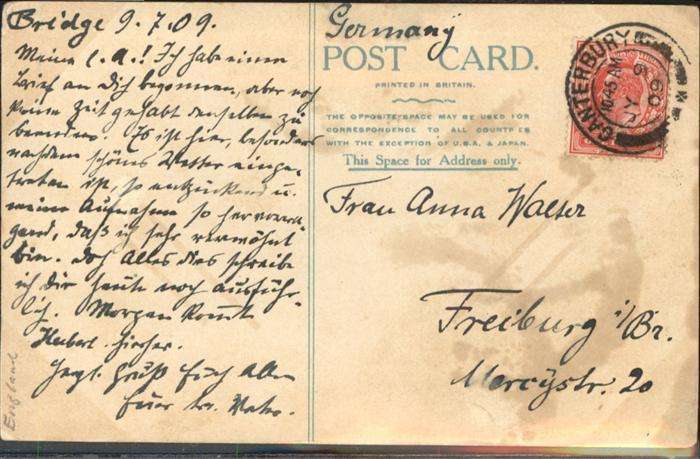 Bridge 9.7.09.
Meine l. A.! Ich habe einen
Brief an Dich begonnen, aber noch
keine Zeit gehabt denselben zu
beenden. Es ist hier, besonders
nachdem schönes Wetter einge-
treten ist, so entzückend u.
meine Aufnahme so hervorra-
gend, daß ich sehr verwöhnt
bin. Doch Alles dies schreibe
ich Dir heute noch ausführ-
lich. Morgen kommt
Hubert hierher.
Herzl. Gruß Euch Allen
Euer tr. Vater.
England
Germany
POST CARD.
PRINTED IN BRITAIN.
THE OPPOSITE SPACE MAY BE USED FOR
CORRESPONDENCE TO ALL COUNTRIES
WITH THE EXCEPTION OF U.S.A. & JAPAN.
This Space for Address only.
CANTERBURY
10.45 AM
JY 9
09
Frau Anna Walter
Freiburg i/Br.
Mercystr. 20